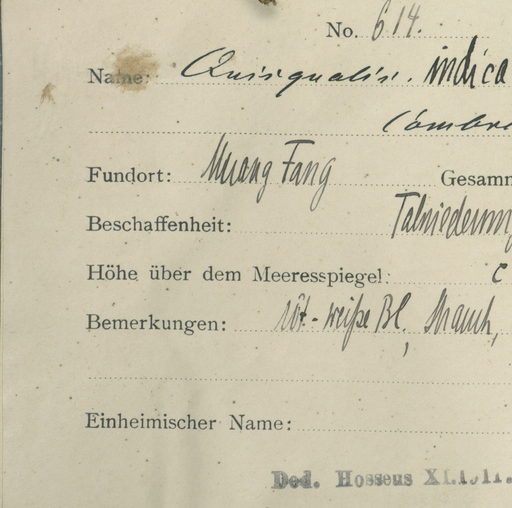 No. 614.
Name: Quisqualis. indica
(Combre
Fundort: Muang Fang Gesamm
Beschaffenheit: Talniederung
Höhe über dem Meeresspiegel: c
Bemerkungen: rot-weiße Bl, Strauch,
Einheimischer Name:
Ded. Hosseus XI.1911.